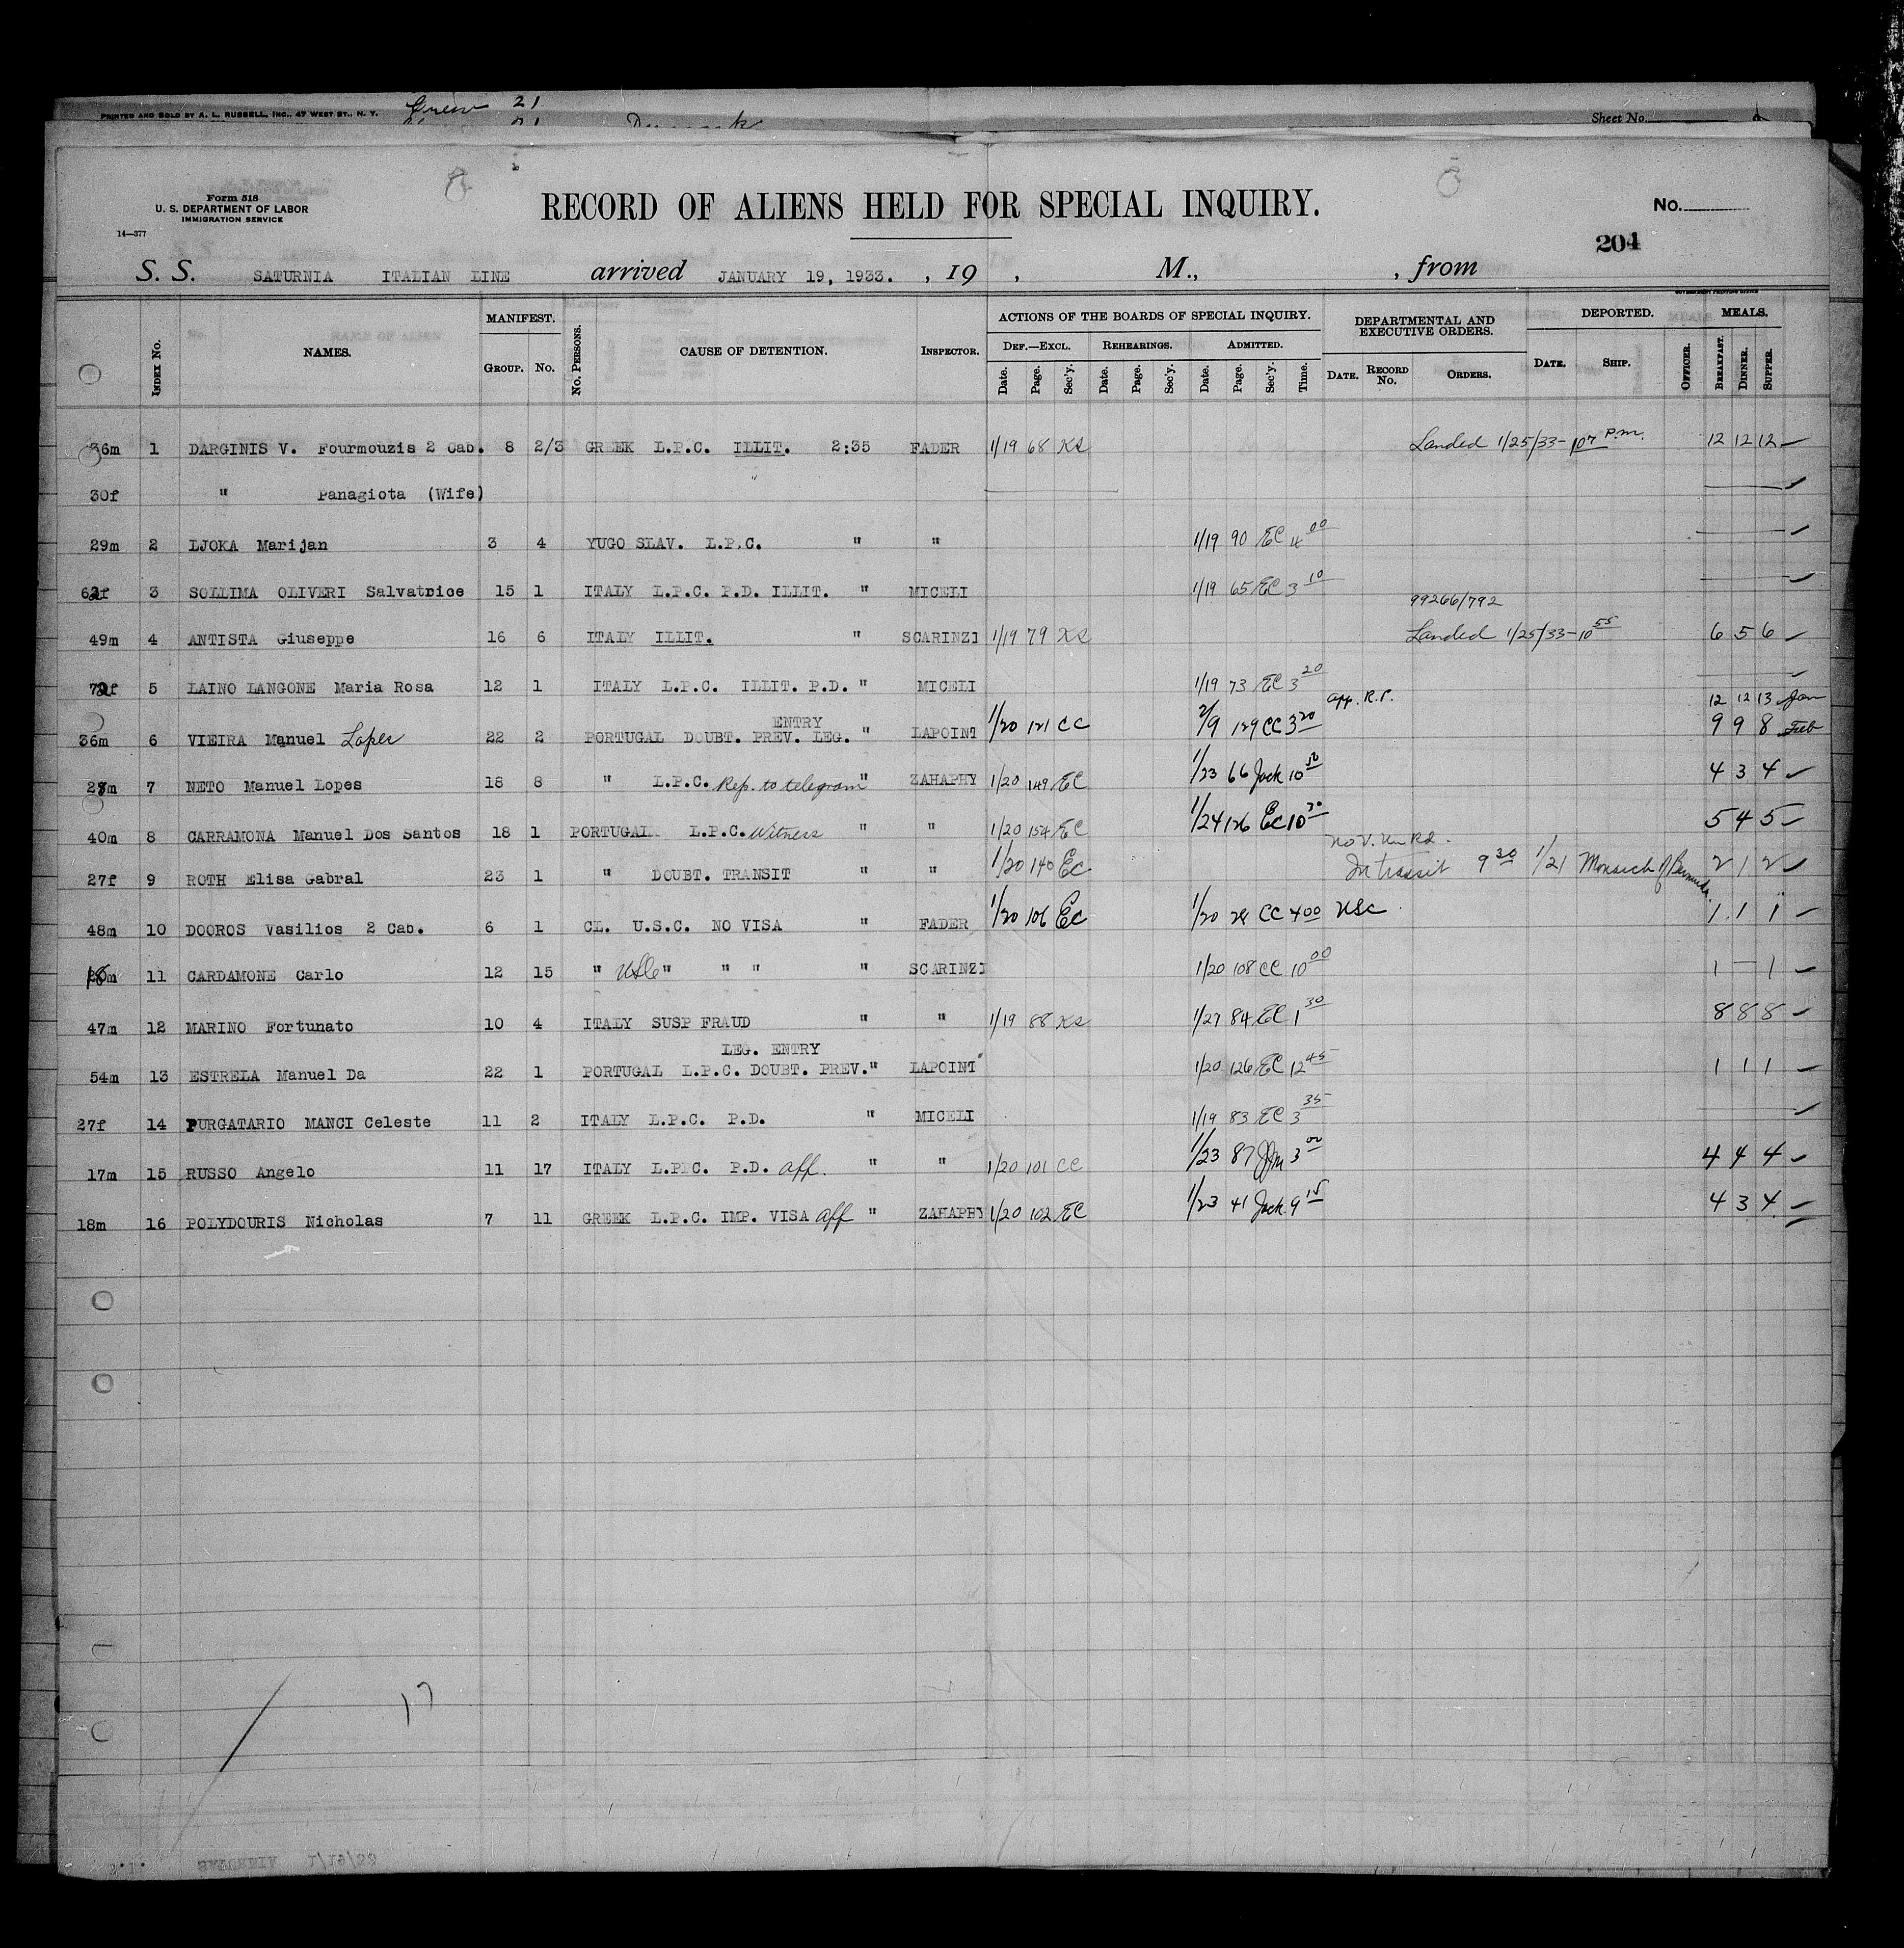 PRINTED AND SOLD BY A. L. RUSSELL, INC., 47 WEST ST., N. Y. 21
Sheet No.
Form 518
U. S. DEPARTMENT OF LABOR
IMMIGRATION SERVICE
14—377
RECORD OF ALIENS HELD FOR SPECIAL INQUIRY.
No.
204
S. S. SATURNIA ITALIAN LINE arrived JANUARY 19, 1933. , 19 , M., , from
GOVERNMENT PRINTING OFFICE
MANIFEST. ACTIONS OF THE BOARDS OF SPECIAL INQUIRY. DEPARTMENTAL AND EXECUTIVE ORDERS. DEPORTED. MEALS.
Index No. NAMES. Group. No. No. Persons. CAUSE OF DETENTION. Inspector. Def.—Excl. Rehearings. Admitted.
Date. Page. Sec'y. Date. Page. Sec'y. Date. Page. Sec'y. Time. Date. Record No. Orders. Date. Ship. Officer. Breakfast. Dinner. Supper.
36m 1 DARGINIS V. Fourmouzis 2 Cab. 8 2/3 GREEK L.P.C. ILLIT. 2:35 FADER 1/19 68 KS Landed 1/25/33 - 1 07 P.M. 12 12 12
30f " Panagiota (Wife) "
29m 2 LJOKA Marijan 3 4 YUGO SLAV. L.P.C. " " 1/19 90 EC 4 00
62f 3 SOLLIMA OLIVERI Salvatrice 15 1 ITALY L.P.C. P.D. ILLIT. " MICELI 1/19 65 EC 3 10
99266/792
49m 4 ANTISTA Giuseppe 16 6 ITALY ILLIT. " SCARINZI 1/19 79 KS Landed 1/25/33 - 10 55 6 5 6
72f 5 LAINO LANGONE Maria Rosa 12 1 ITALY L.P.C. ILLIT. P.D. " MICELI 1/19 73 EC 3 20
app. R.P. 12 12 13 Jan
ENTRY
36m 6 VIEIRA Manuel Lopes 22 2 PORTUGAL DOUBT. PREV. LEG. " LAPOINT 1/20 121 CC 2/9 129 CC 3 20 9 9 8 Feb
7 NETO Manuel Lopes 18 8 " L.P.C. Rep. to telegram " ZAHAPHY 1/20 149 EC 1/23 66 Jack 10 50 4 3 4
40m 8 CARRAMONA Manuel Dos Santos 18 1 PORTUGAL L.P.C. Witness " " 1/20 154 EC 1/24 126 EC 10 30 5 4 5
27f 9 ROTH Elisa Gabral 23 1 " DOUBT. TRANSIT " " 1/20 140 EC In transit 9 30 1/21 Monarch of Bermuda 2 1 2
48m 10 DOOROS Vasilios 2 Cab. 6 1 CL. U.S.C. NO VISA " FADER 1/20 106 EC 1/20 28 CC 4 00 USC 1 1 1
18m 11 CARDAMONE Carlo 12 15 " USC " " " " SCARINZI 1/20 108 CC 10 00 1 — 1
47m 12 MARINO Fortunato 10 4 ITALY SUSP FRAUD " " 1/19 88 KS 1/27 84 EC 1 30 8 8 8
LEG. ENTRY
54m 13 ESTRELA Manuel Da 22 1 PORTUGAL L.P.C. DOUBT. PREV. " LAPOINT 1/20 126 EC 12 45 1 1 1
27f 14 PURGATARIO MANCI Celeste 11 2 ITALY L.P.C. P.D. " MICELI 1/19 83 EC 3 35
17m 15 RUSSO Angelo 11 17 ITALY L.P.C. P.D. aff. " " 1/20 101 CC 1/23 87 3 00 4 4 4
18m 16 POLYDOURIS Nicholas 7 11 GREEK L.P.C. IMP. VISA aff " ZAHAPHY 1/20 102 EC 1/23 41 Jack 9 15 4 3 4
17